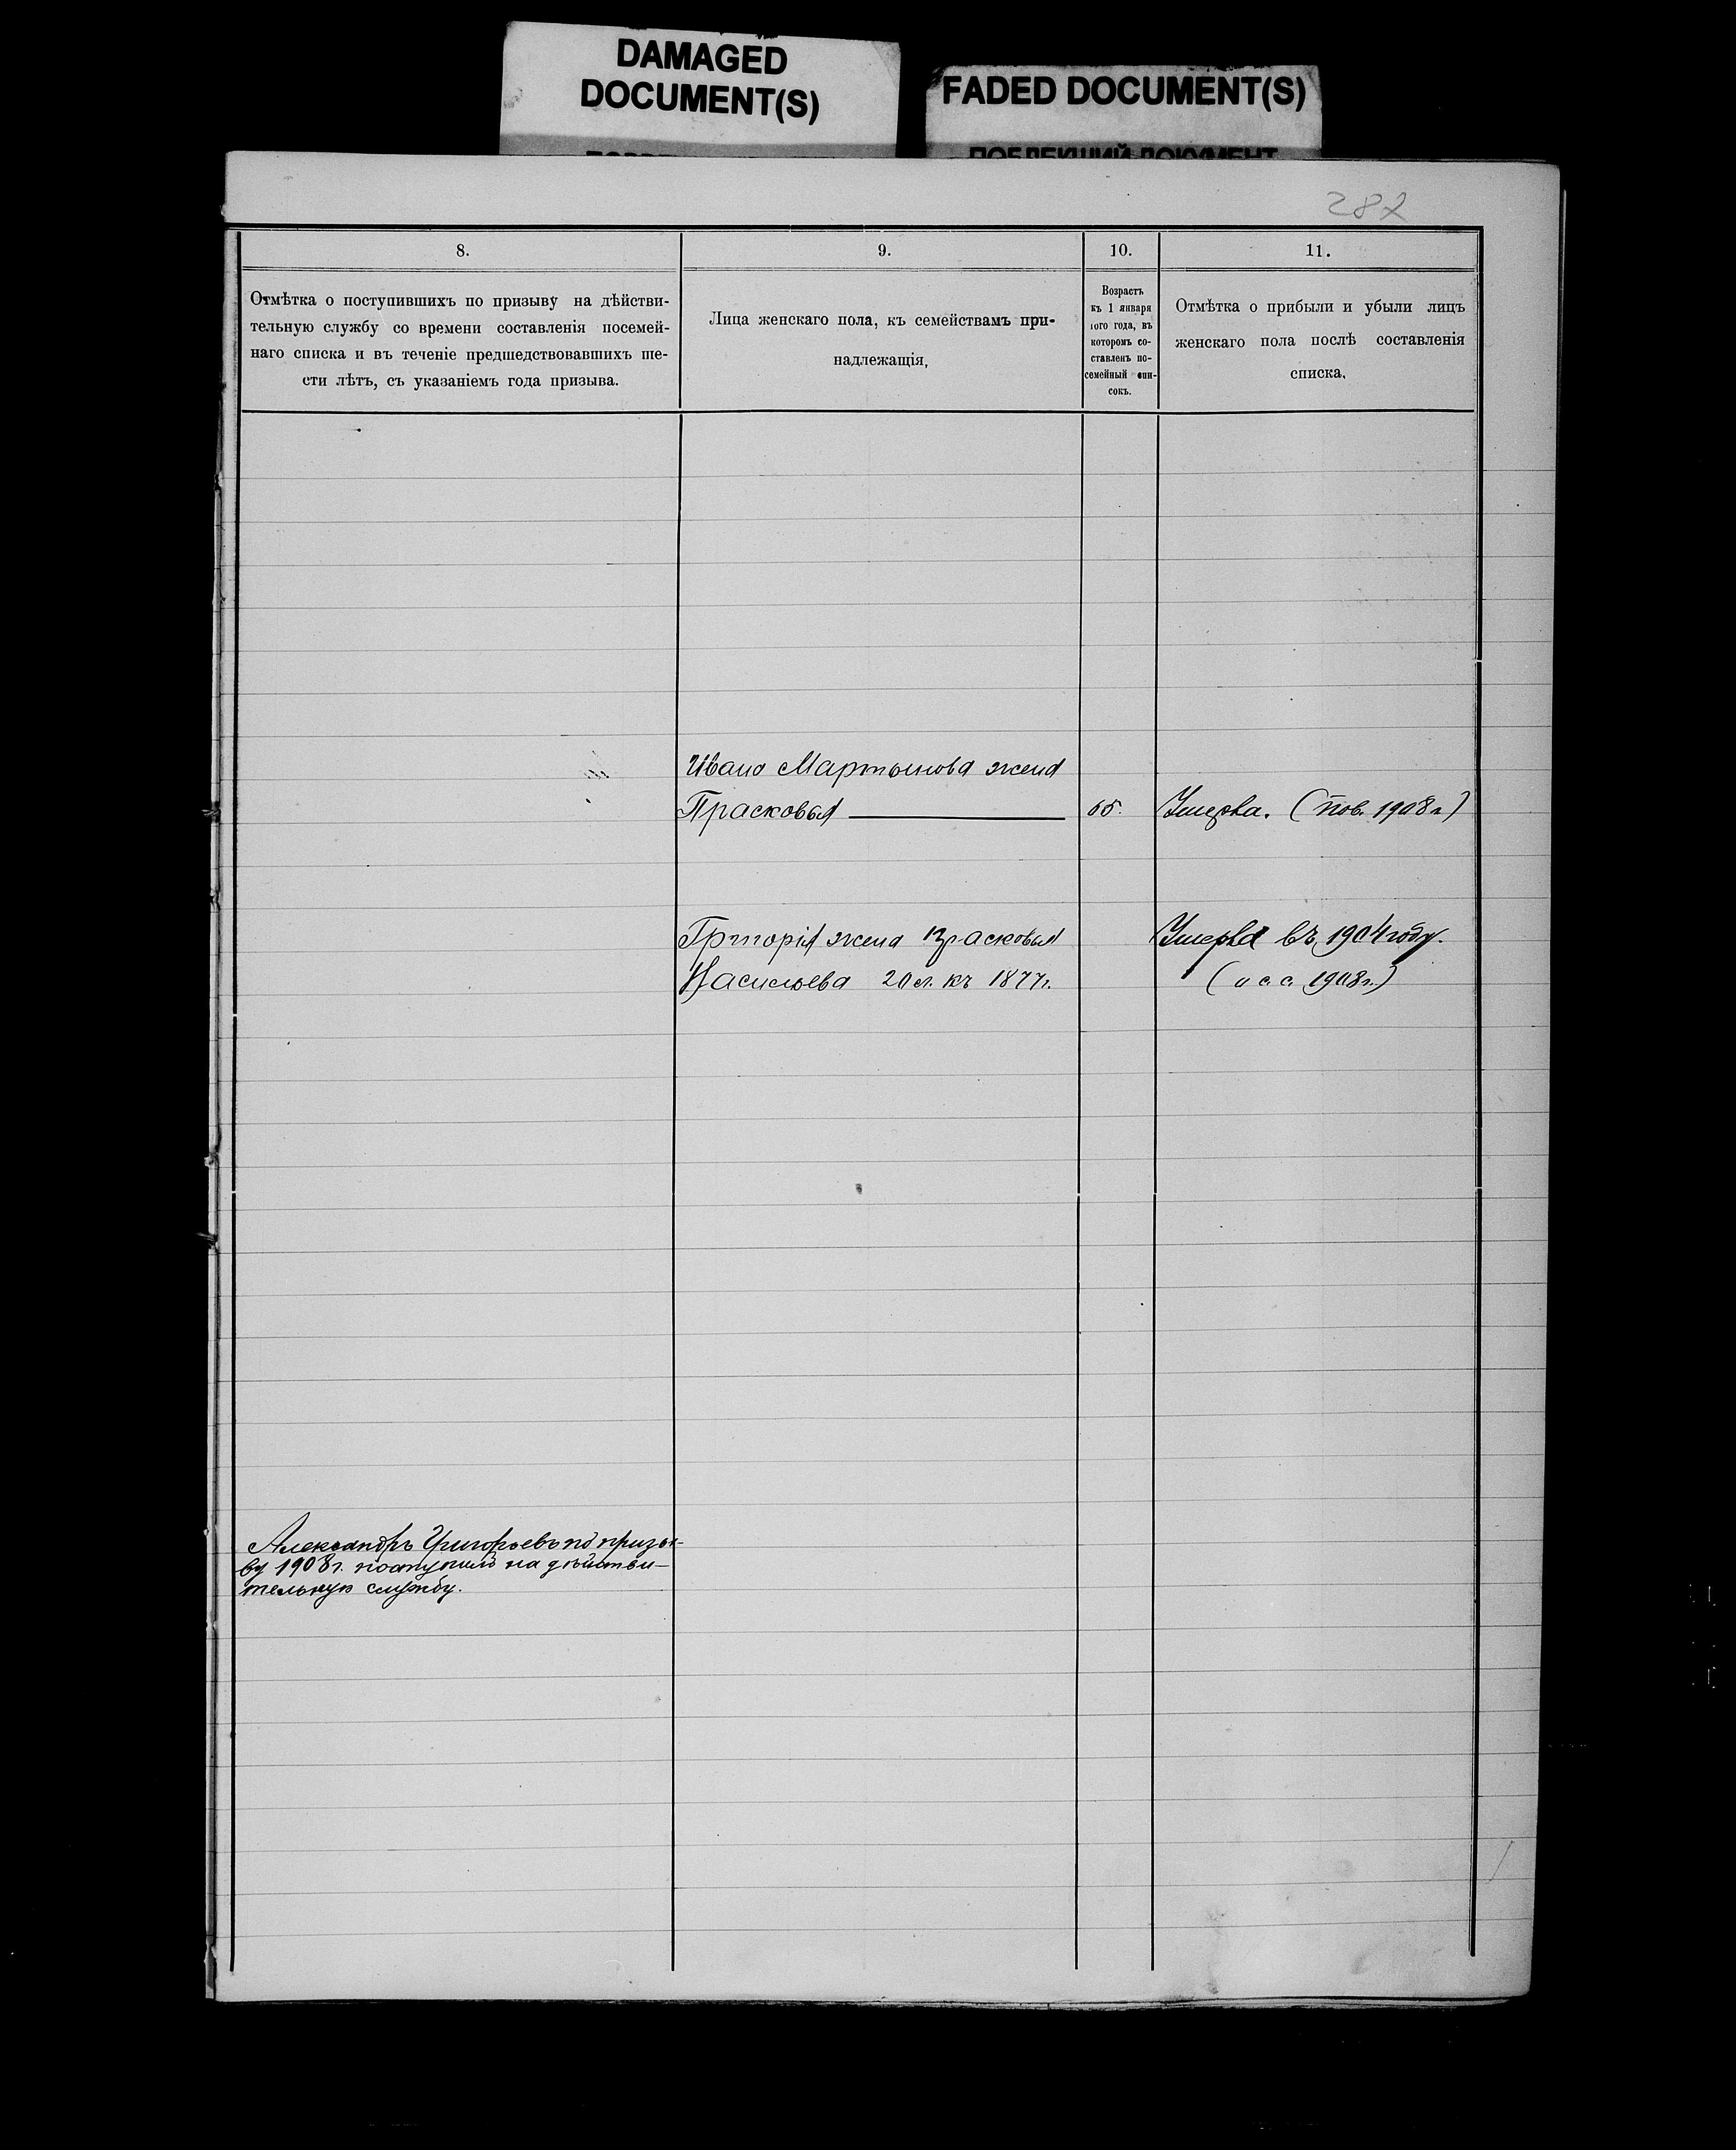 DAMAGED
DOCUMENT(S)
FADED DOCUMENT(S)
ПОБЛЕКШИЙ ДОКУМЕНТ
282
8.
Отмѣтка о поступившихъ по призыву на дѣйстви-
тельную службу со времени составленія посемей-
наго списка и въ теченіе предшедствовавшихъ ше-
сти лѣтъ, съ указаніемъ года призыва.
9.
Лица женскаго пола, къ семействамъ при-
надлежащія,
10.
Возрастъ
къ 1 января
того года, въ
которомъ со-
ставленъ по-
семейный спи-
сокъ.
11.
Отмѣтка о прибыли и убыли лицъ
женскаго пола послѣ составленія
списка.
Ивана Мартынова жена
Прасковья
65.
Умерла. (пов. 1908 г)
Григорія жена Прасковья
Васильева 20 л. къ 1877 г.
Умерла въ 1904 году.
(п с. с. 1908 г.)
Александръ Григорьевъ по призы-
ву 1908 г. поступилъ на дѣйстви-
тельную службу.